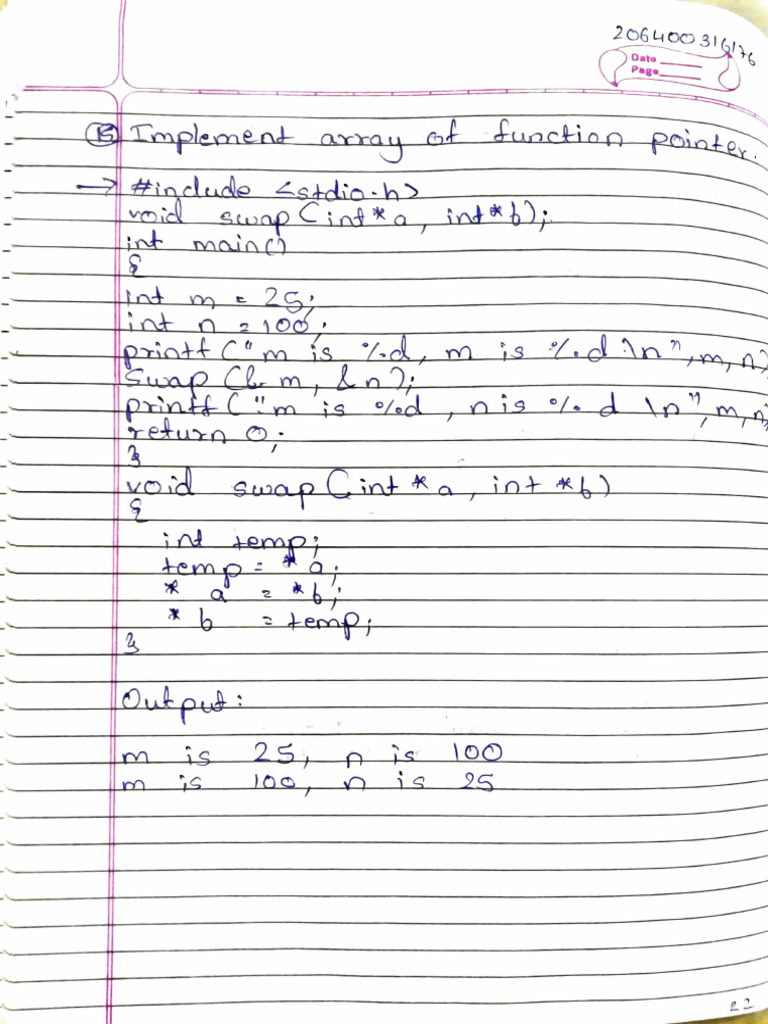 206400316176
Date
Page
15 Implement array of function pointer.
→ #include <stdio.h>
void swap(int*a, int*b);
int main()
{
int m = 25;
int n = 100;
printf("m is %d, m is %d \n", m, n)
swap(&m, &n);
printf("m is %d, n is %d \n", m, n)
return 0;
}
void swap(int *a, int *b)
{
int temp;
temp = *a;
* a = *b;
* b = temp;
}
Output:
m is 25, n is 100
m is 100, n is 25
22